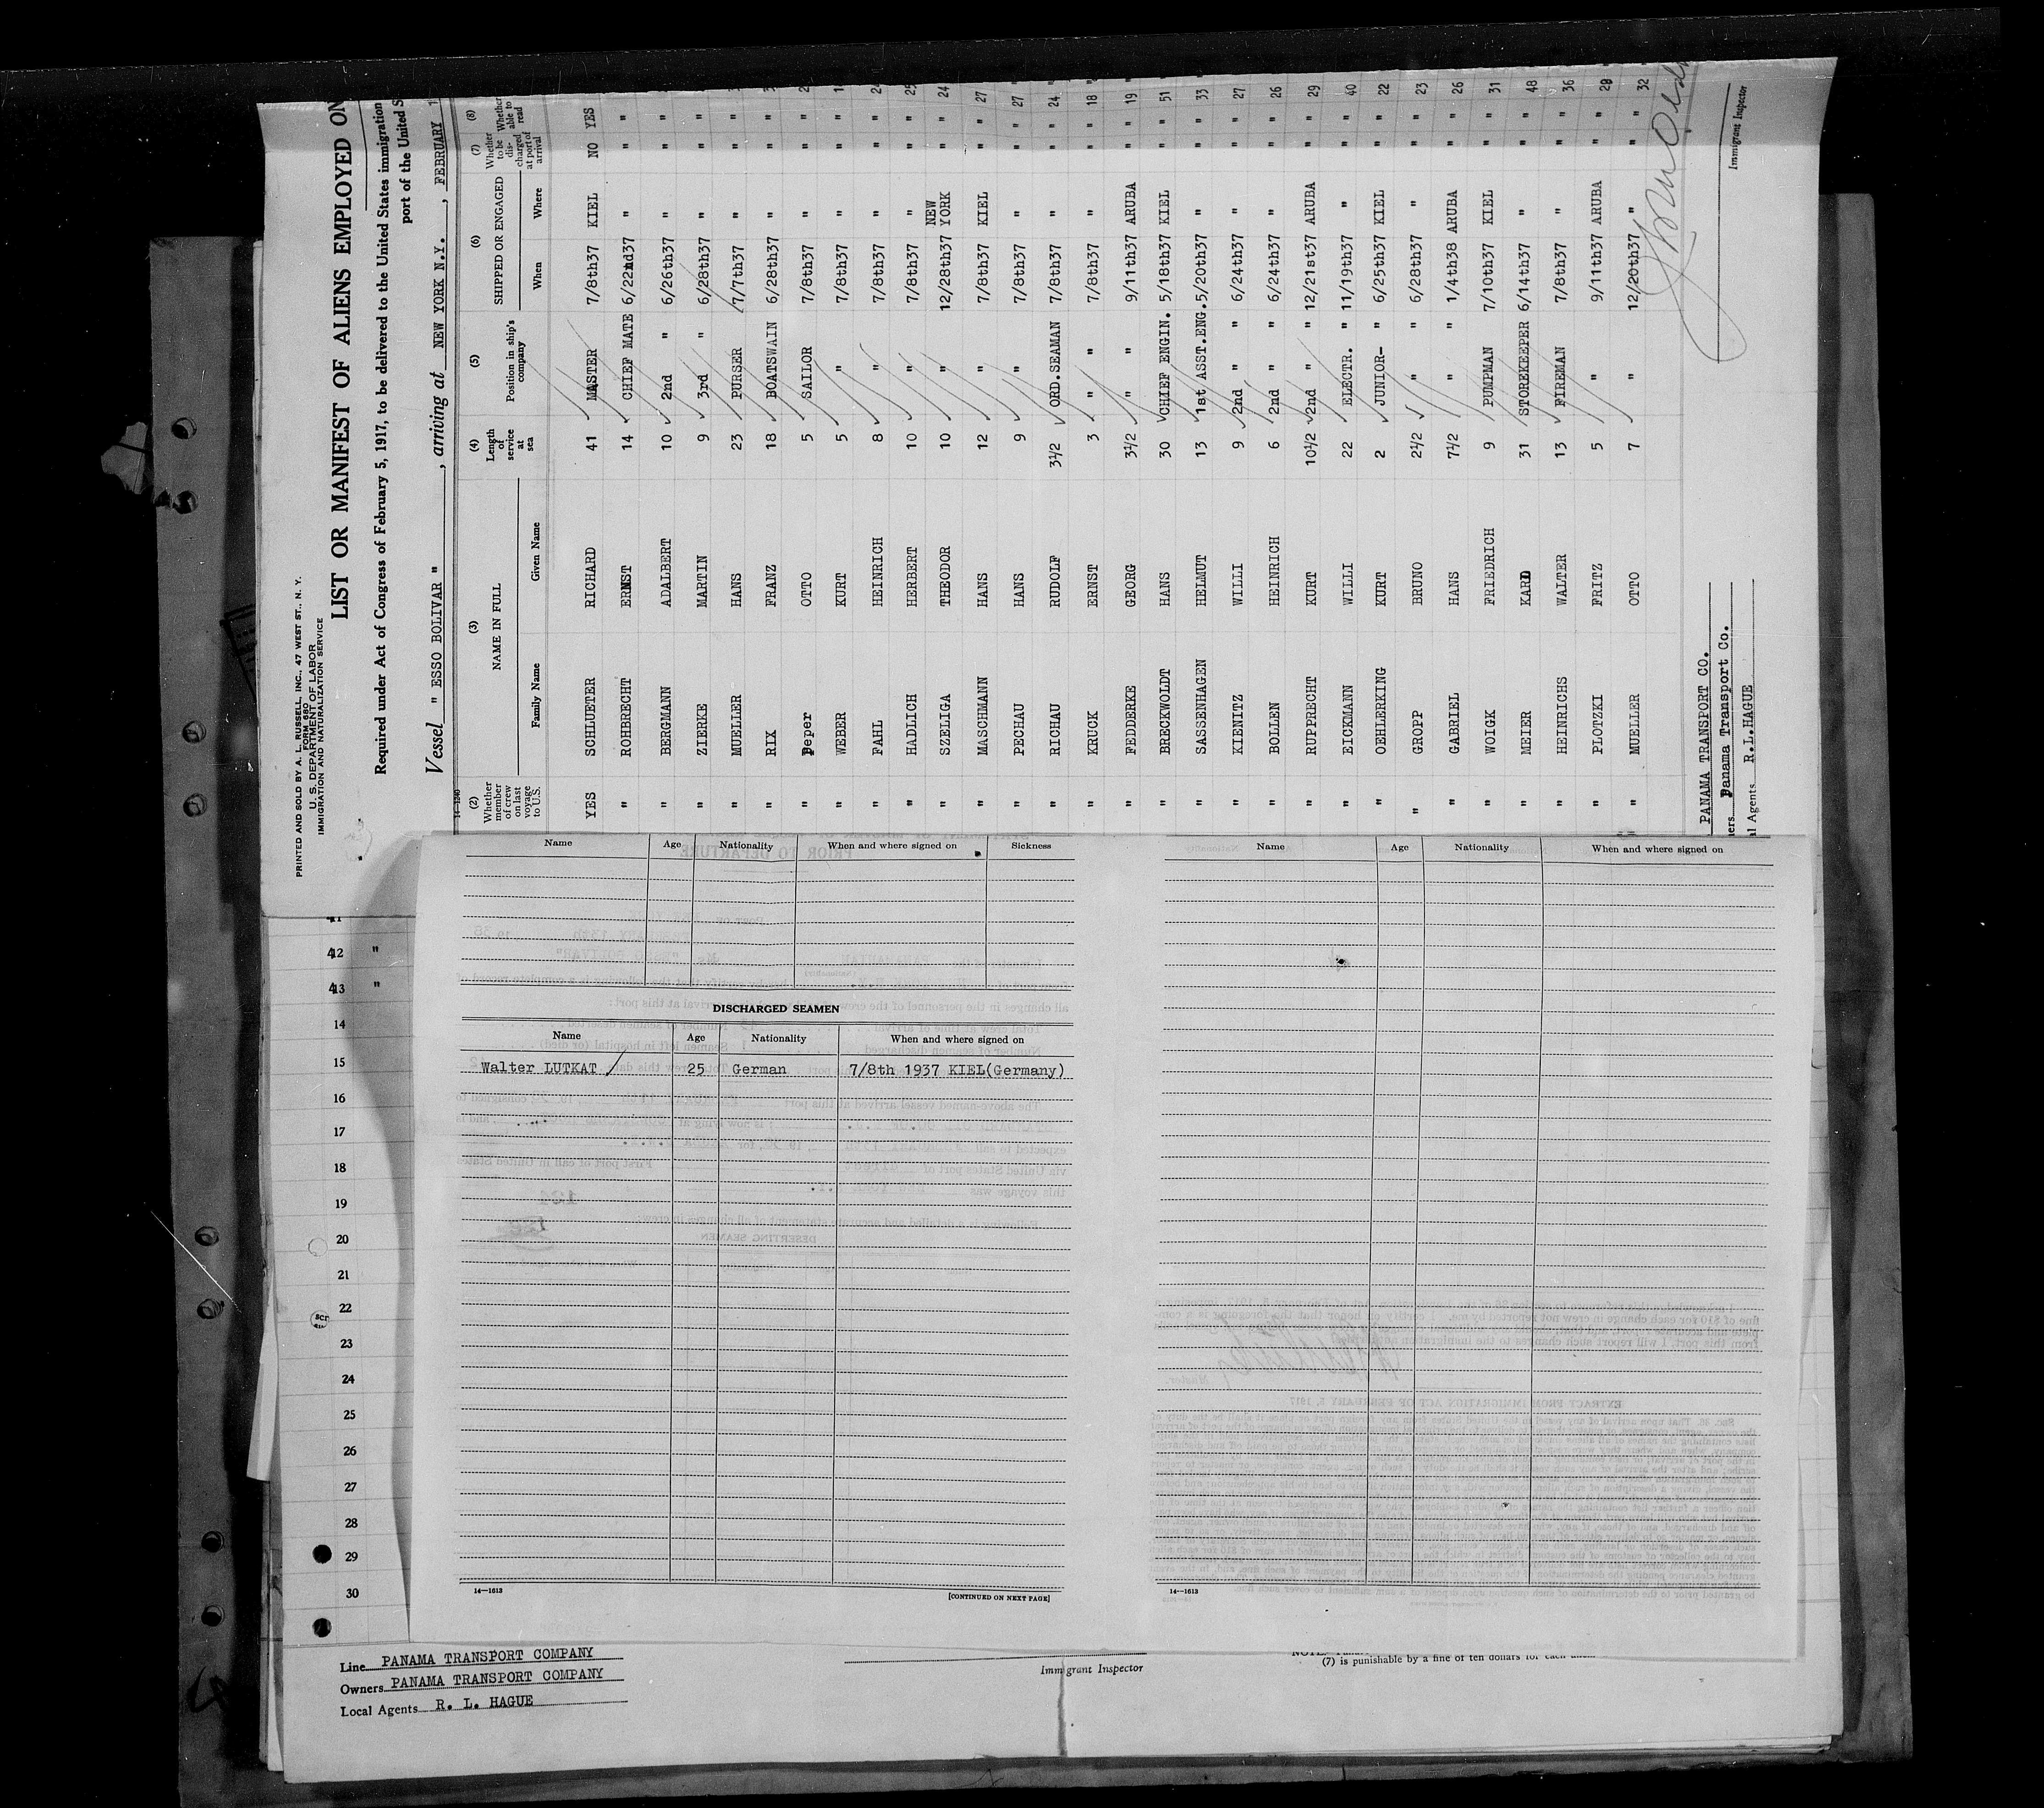 PRINTED AND SOLD BY A. L. RUSSELL, INC., 47 WEST ST., N. Y.
FORM 680
U. S. DEPARTMENT OF LABOR
IMMIGRATION AND NATURALIZATION SERVICE
LIST OR MANIFEST OF ALIENS EMPLOYED ON
Required under Act of Congress of February 5, 1917, to be delivered to the United States immigration
port of the United S
Vessel " ESSO BOLIVAR " , arriving at NEW YORK N.Y. , FEBRUARY 1
14-1240
(2) Whether member of crew on last voyage to U.S. (3) NAME IN FULL Family Name Given Name (4) Length of service at sea (5) Position in ship's company (6) SHIPPED OR ENGAGED When Where (7) Whether to be discharged at port of arrival (8) Whether able to read
YES SCHLUETER RICHARD 41 MASTER 7/8th37 KIEL NO YES
" ROHBRECHT ERNST 14 CHIEF MATE 6/22nd37 " " "
" BERGMANN ADALBERT 10 2nd " 6/26th37 " " "
" ZIERKE MARTIN 9 3rd " 6/28th37 " " "
" MUELLER HANS 23 PURSER 7/7th37 " " "
" RIX FRANZ 18 BOATSWAIN 6/28th37 " " "
" Peper OTTO 5 SAILOR 7/8th37 " " "
" WEBER KURT 5 " 7/8th37 " " "
" FAHL HEINRICH 8 " 7/8th37 " " " 24
" HADLICH HERBERT 10 " 7/8th37 " " " 25
" SZELIGA THEODOR 10 " 12/28th37 NEW YORK " " 24
" MASCHMANN HANS 12 " 7/8th37 KIEL " " 27
" PECHAU HANS 9 " 7/8th37 " " " 27
" RICHAU RUDOLF 3½ ORD.SEAMAN 7/8th37 " " " 24
" KRUCK ERNST 3 " " 7/8th37 " " " 18
" FEDDERKE GEORG 3½ " " 9/11th37 ARUBA " " 19
" BRECKWOLDT HANS 30 CHIEF ENGIN. 5/18th37 KIEL " " 51
" SASSENHAGEN HELMUT 13 1st ASST.ENG. 5/20th37 " " " 33
" KIENITZ WILLI 9 2nd " " 6/24th37 " " " 27
" BOLLEN HEINRICH 6 2nd " " 6/24th37 " " " 26
" RUPPRECHT KURT 10½ 2nd " " 12/21st37 ARUBA " " 29
" EICKMANN WILLI 22 ELECTR. " 11/19th37 " " " 40
" OEHLERKING KURT 2 JUNIOR- " 6/25th37 KIEL " " 22
" GROPP BRUNO 2½ " " 6/28th37 " " " 23
" GABRIEL HANS 7½ " " 1/4th38 ARUBA " " 26
" WOIGK FRIEDRICH 9 PUMPMAN 7/10th37 KIEL " " 31
" MEIER KARL 31 STOREKEEPER 6/14th37 " " " 48
" HEINRICHS WALTER 13 FIREMAN 7/8th37 " " " 36
" PLOTZKI FRITZ 5 " 9/11th37 ARUBA " " 29
" MUELLER OTTO 7 " 12/20th37 " " " 32
PANAMA TRANSPORT CO.
ners Panama Transport Co.
l Agents R.L.HAGUE
Immigrant Inspector
Name Age Nationality When and where signed on Sickness
DISCHARGED SEAMEN
Name Age Nationality When and where signed on
Walter LUTKAT 25 German 7/8th 1937 KIEL(Germany)
14—1613
[CONTINUED ON NEXT PAGE]
Name Age Nationality When and where signed on
14—1613
12 "
13 "
14
15
16
17
18
19
20
21
22
23
24
25
26
27
28
29
30
Line PANAMA TRANSPORT COMPANY
Owners PANAMA TRANSPORT COMPANY
Local Agents R. L. HAGUE
Immigrant Inspector
(7) is punishable by a fine of ten dollars for each